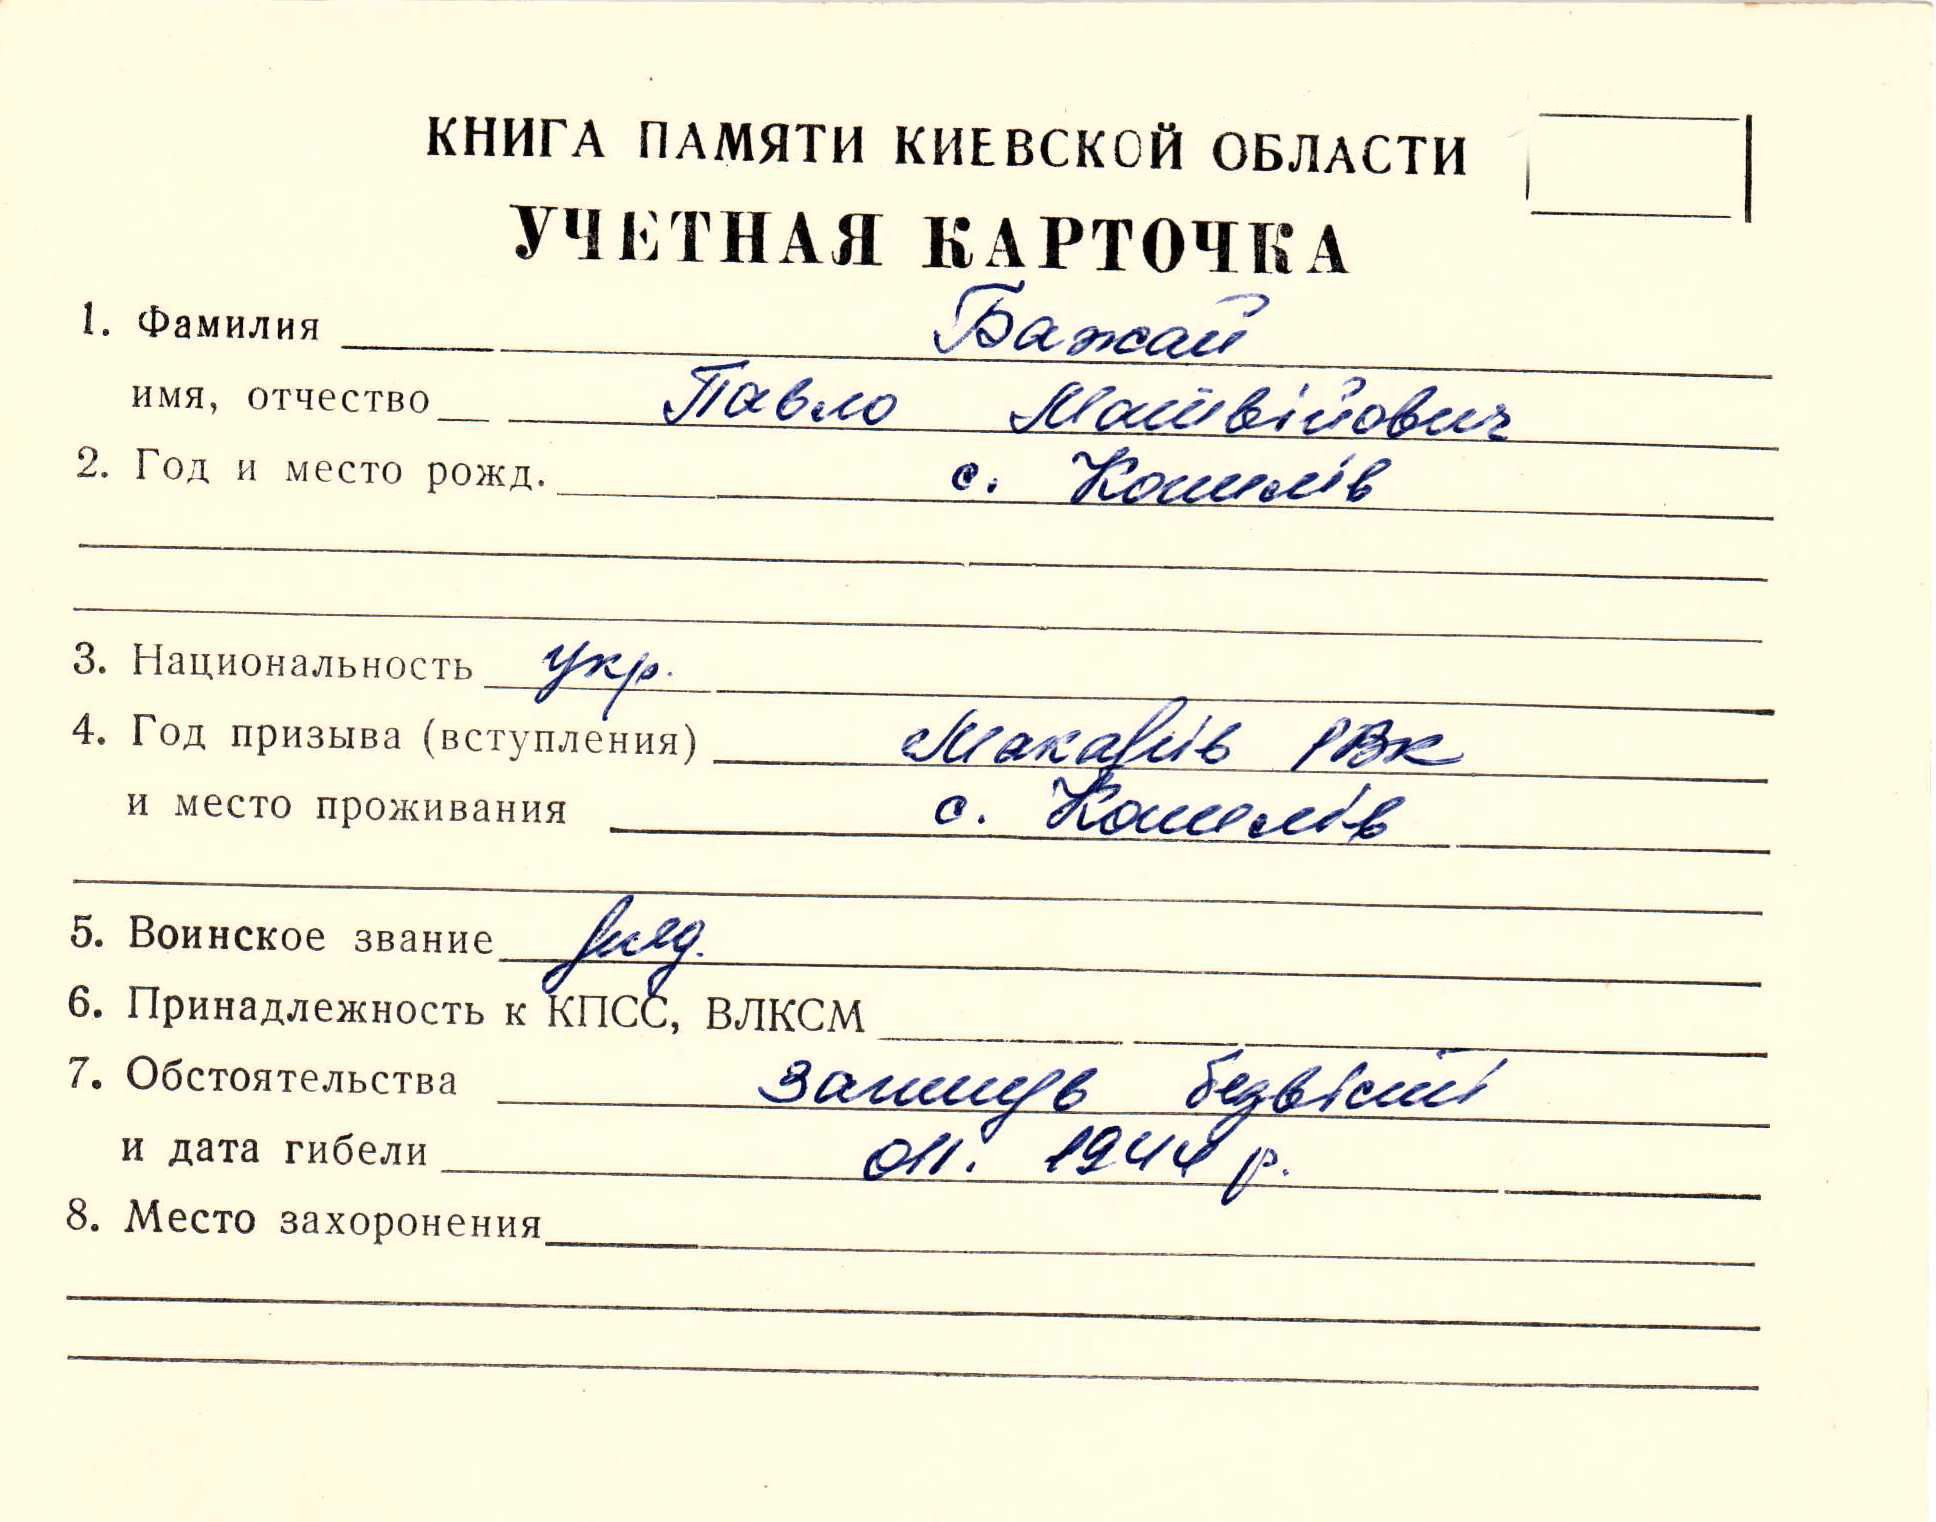 КНИГА ПАМЯТИ КИЕВСКОЙ ОБЛАСТИ
УЧЕТНАЯ КАРТОЧКА
1. Фамилия Бажай
имя, отчество Павло Матвійович
2. Год и место рожд. с. Кошилів
3. Национальность укр.
4. Год призыва (вступления) Макарів РВК
и место проживания с. Кошилів
5. Воинское звание ряд.
6. Принадлежность к КПСС, ВЛКСМ
7. Обстоятельства загинув безвісті
и дата гибели 011. 1944 р.
8. Место захоронения